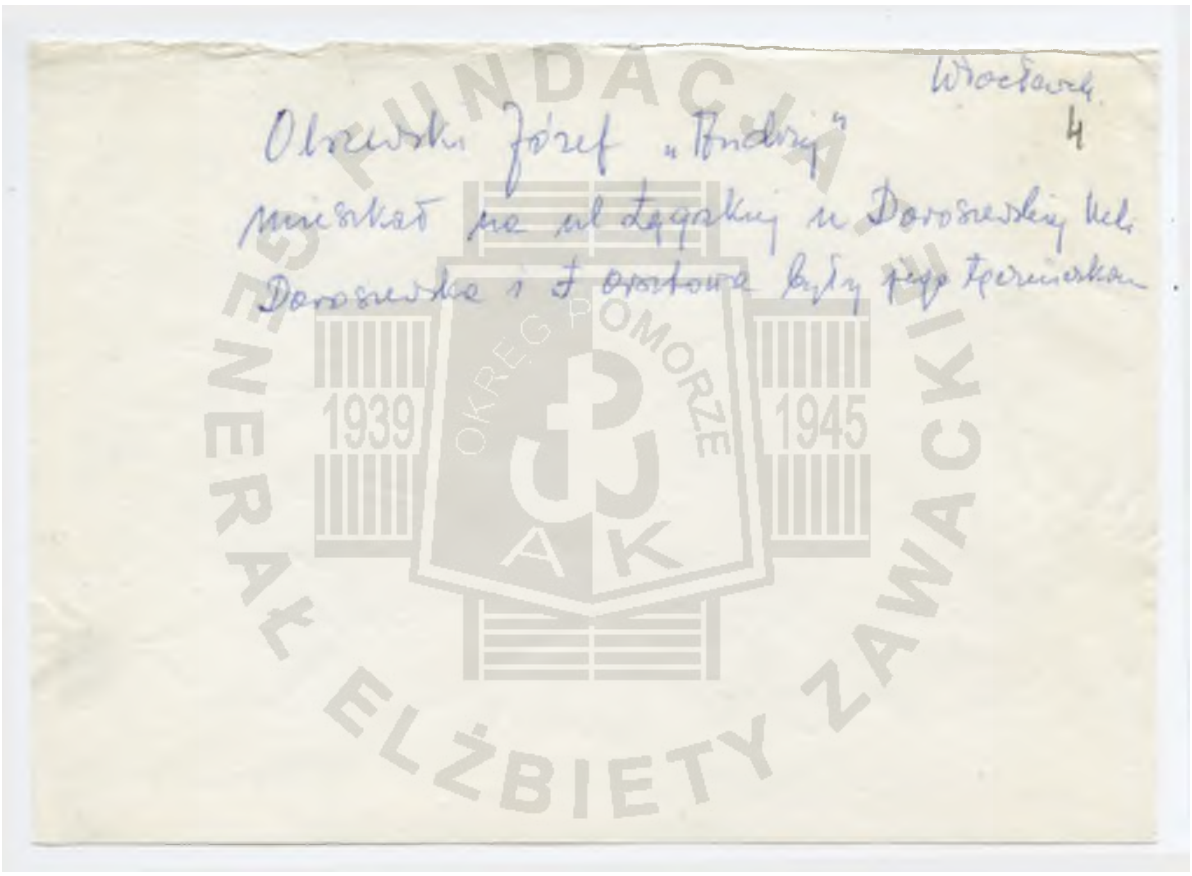 Włocławek
4
Olszewski Józef „Andrzej"
mieszkał na ul Łęgskiej u Doroszewskiej Hel.
Doroszewska i były jego łączniczkami
FUNDACJA
GENERAŁ ELŻBIETY ZAWACKIEJ
OKRĘG POMORZE
1939
1945
AK